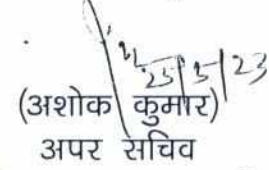 25/5/23
(अशोक कुमार)
अपर सचिव